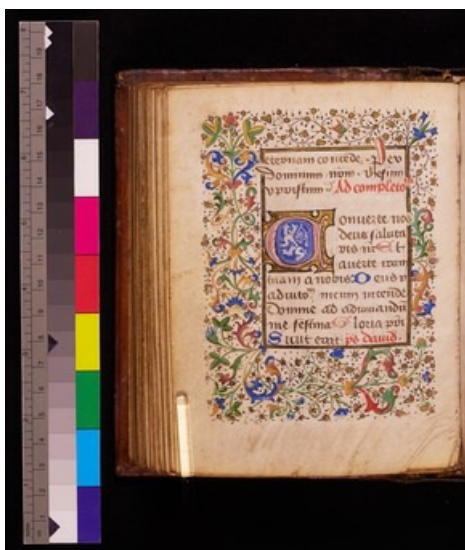 eternam concede . Per
Dominum nom . Ihesum
xp̄pristum Ad completo
Conuerte nos
deus saluta
ris nr̄ Et
auerte iram
tuam a nobis Deus in
adiuto meum intende
Domine ad adiuuandū
me festina Gloria p̄ri
Sicut erat ps dauid .